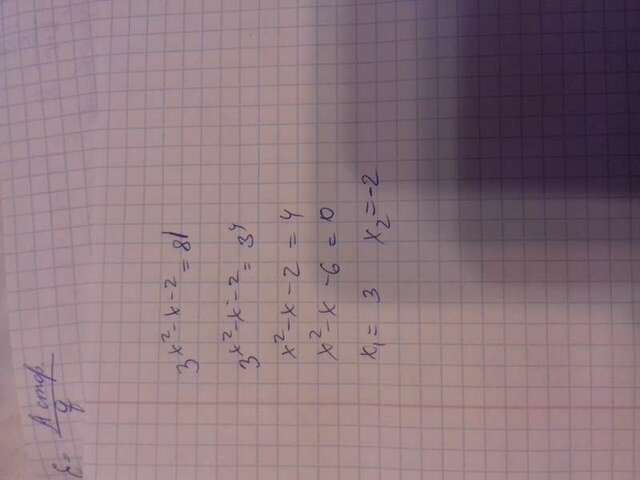 3^{x^2-x-2} = 81
3^{x^2-x-2} = 3^4
x^2-x-2 = 4
x^2-x-6 = 0
x_1 = 3   x_2 = -2